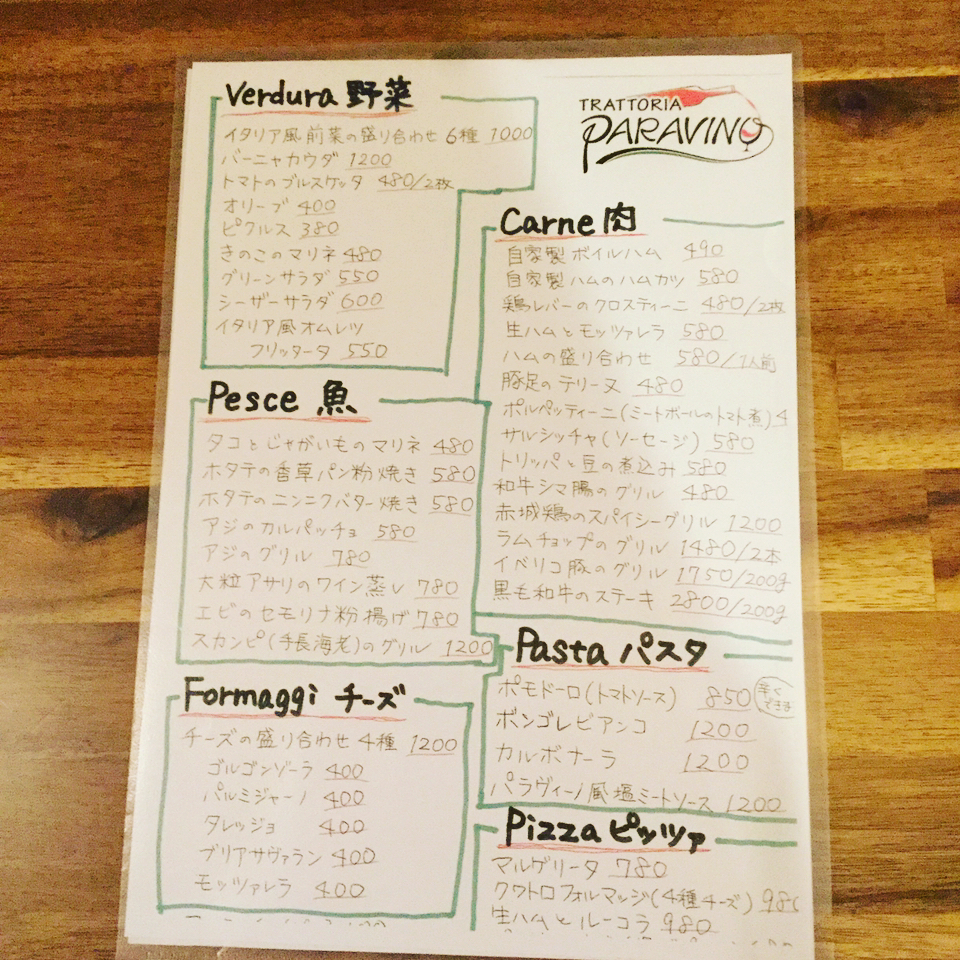 Verdura 野菜
イタリア風前菜の盛り合わせ 6種 1000
バーニャカウダ 1200
トマトのブルスケッタ 480/2枚
オリーブ 400
ピクルス 380
きのこのマリネ 480
グリーンサラダ 550
シーザーサラダ 600
イタリア風オムレツ
フリッタータ 550
Pesce 魚
タコとじゃがいものマリネ 480
ホタテの香草パン粉焼き 580
ホタテのニンニクバター焼き 580
アジのカルパッチョ 580
アジのグリル 780
大粒アサリのワイン蒸し 780
エビのセモリナ粉揚げ 780
スカンピ(手長海老)のグリル 1200
Formaggi チーズ
チーズの盛り合わせ 4種 1200
ゴルゴンゾーラ 400
パルミジャーノ 400
タレッジョ 400
ブリアサヴァラン 400
モッツァレラ 400
TRATTORIA
PARAVINO
Carne 肉
自家製ボイルハム 490
自家製ハムのハムカツ 580
鶏レバーのクロスティーニ 480/2枚
生ハムとモッツァレラ 580
ハムの盛り合わせ 580/1人前
豚足のテリーヌ 480
ポルペッティーニ(ミートボールのトマト煮) 4
サルシッチャ(ソーセージ) 580
トリッパと豆の煮込み 580
和牛シマ腸のグリル 480
赤城鶏のスパイシーグリル 1200
ラムチョップのグリル 1480/2本
イベリコ豚のグリル 1750/200g
黒毛和牛のステーキ 2800/200g
Pasta パスタ
ポモドーロ(トマトソース) 850 辛くできる
ボンゴレビアンコ 1200
カルボナーラ 1200
パラヴィーノ風塩ミートソース 1200
Pizza ピッツァ
マルゲリータ 780
クワトロフォルマッジ(4種チーズ) 980
生ハムとルーコラ 980